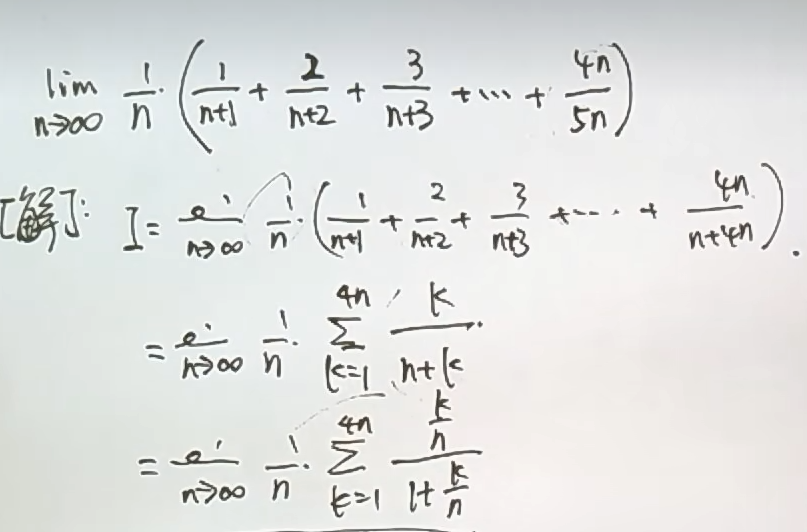 lim n→∞ 1/n · (1/(n+1) + 2/(n+2) + 3/(n+3) + ··· + 4n/5n)
[解]: I = lim n→∞ 1/n · (1/(n+1) + 2/(n+2) + 3/(n+3) + ···· + 4n/(n+4n)).
= lim n→∞ 1/n · ∑ k=1 4n k/(n+k) .
= lim n→∞ 1/n · ∑ k=1 4n (k/n)/(1+k/n)